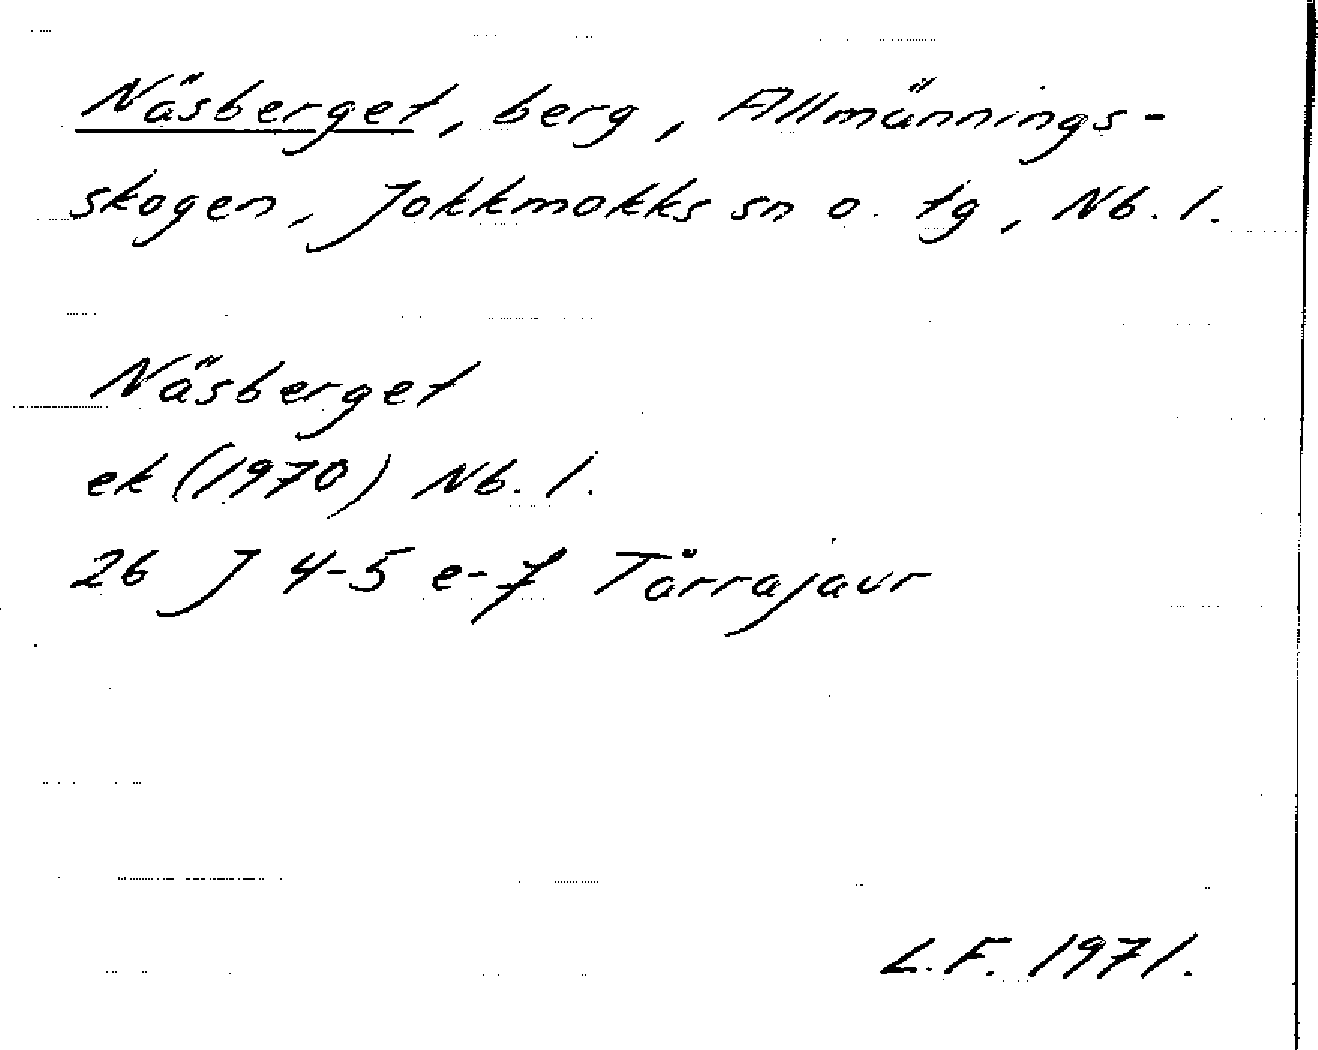 Näsberget, berg, Allmännings-
skogen, Jokkmokks sn o. tg, Nb. l.
Näsberget
ek (1970) Nb. l.
26 J 4-5 e-f Tårrajaur
L.F. 1971.